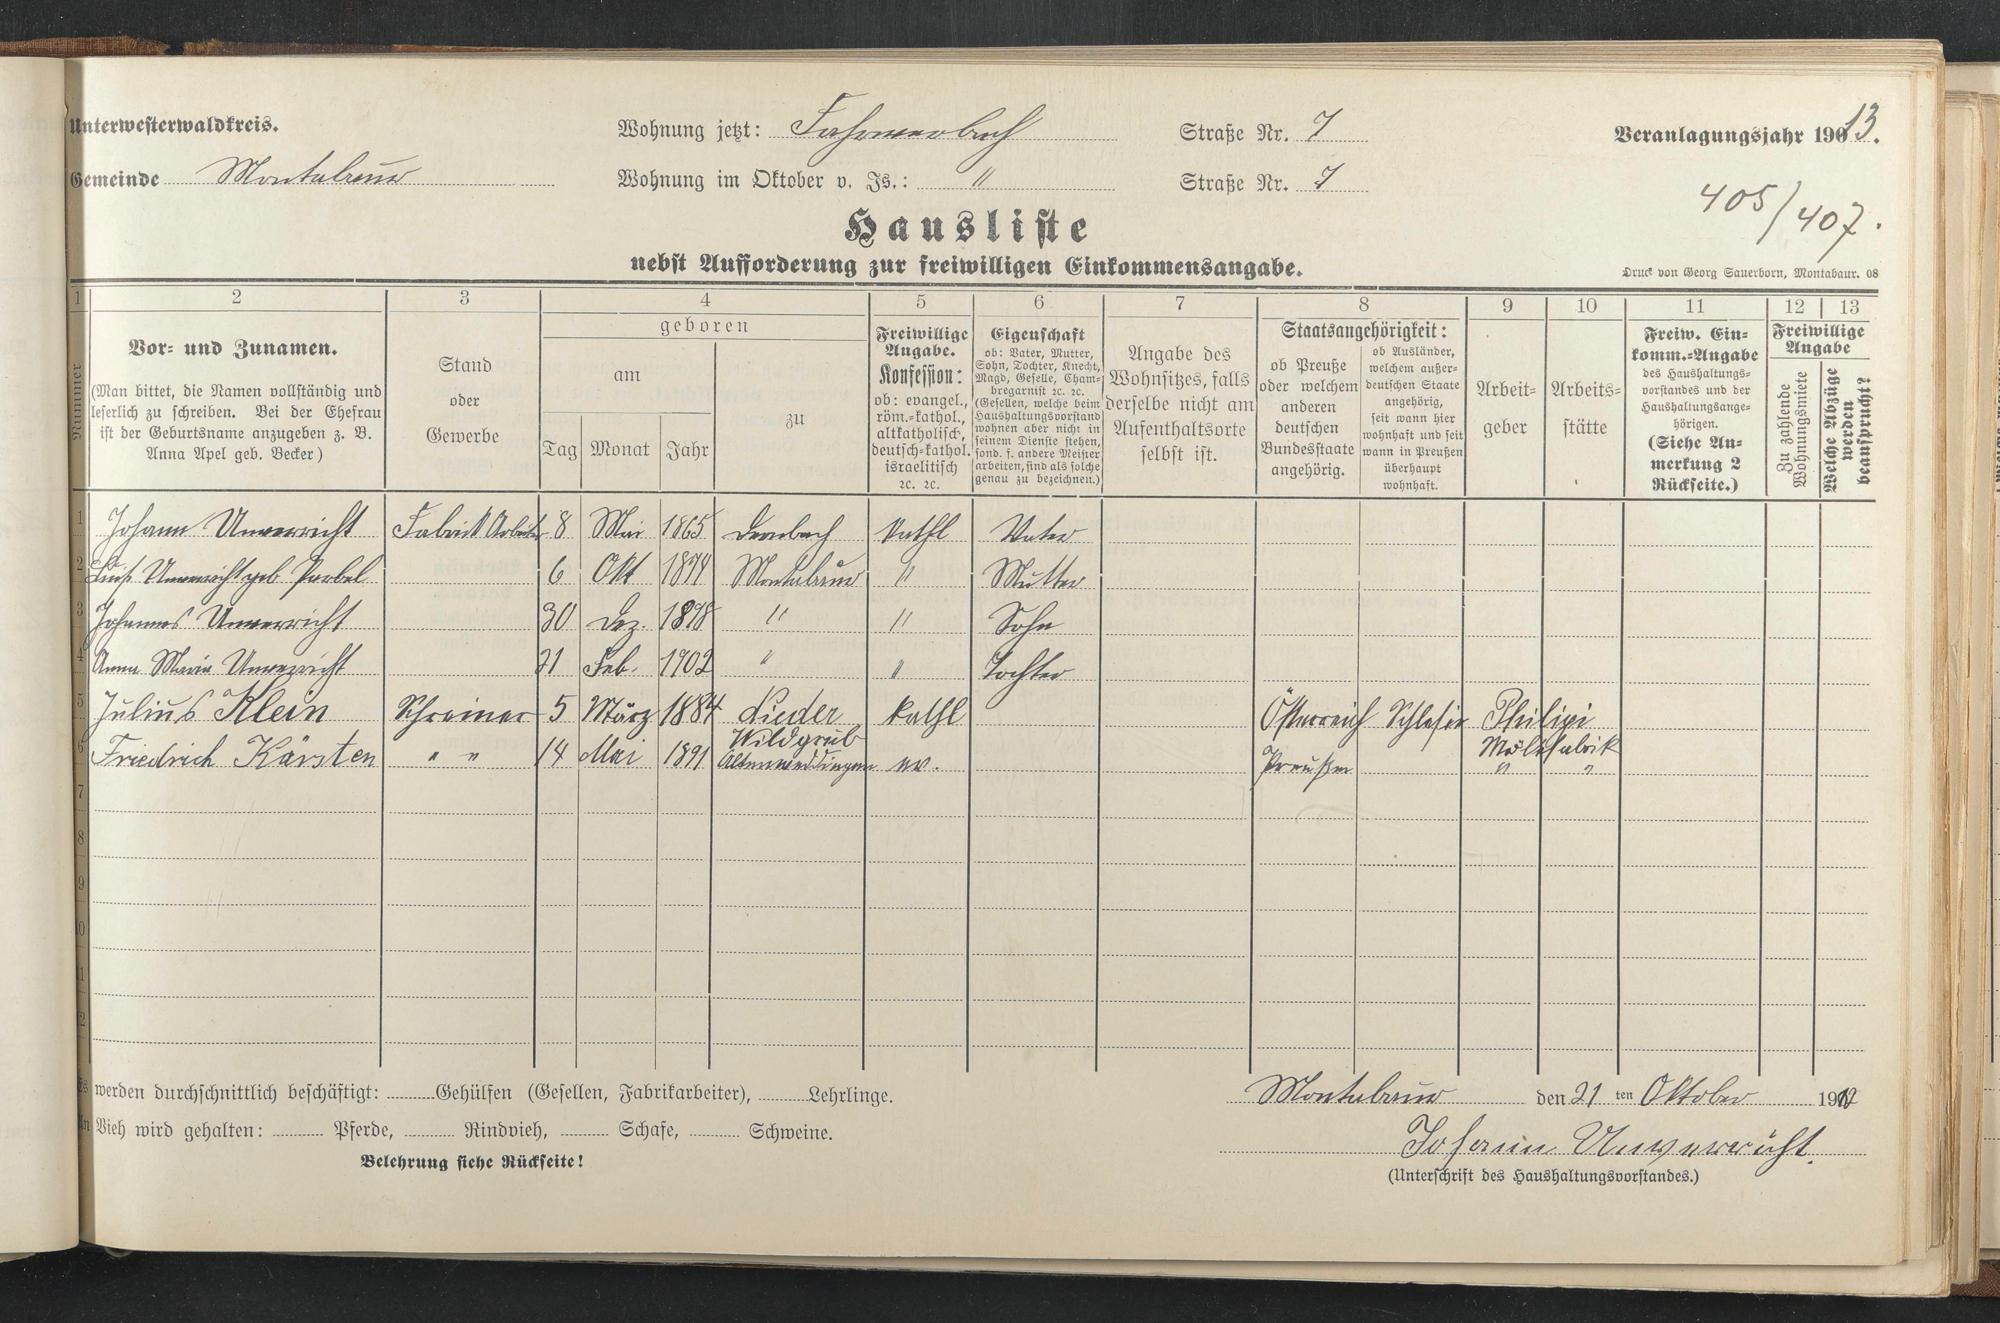 Unterwesterwaldkreis.
Wohnung jetzt: Fahrnerbach Straße Nr. 7
Veranlagungsjahr 1913.
Gemeinde Montabaur
Wohnung im Oktober v. Js.: " Straße Nr. 7
405/407.
Hausliste
nebst Aufforderung zur freiwilligen Einkommensangabe.
Druck von Georg Sauerborn, Montabaur. 08
1 2 3 4 5 6 7 8 9 10 11 12 13
Nummer
Vor- und Zunamen.
(Man bittet, die Namen vollständig und
leserlich zu schreiben. Bei der Ehefrau
ist der Geburtsname anzugeben z. B.
Anna Apel geb. Becker)
Stand
oder
Gewerbe
geboren
am
Tag Monat Jahr
zu
Freiwillige
Angabe.
Konfession:
ob: evangel.,
röm.-kathol.,
altkatholisch,
deutsch-kathol.
israelitisch
ꝛc. ꝛc.
Eigenschaft
ob: Vater, Mutter,
Sohn, Tochter, Knecht,
Magd, Geselle, Cham-
bregarnist ꝛc. ꝛc.
(Gesellen, welche beim
Haushaltungsvorstand
wohnen aber nicht in
seinem Dienste stehen,
sond. f. andere Meister
arbeiten, sind als solche
genau zu bezeichnen.)
Angabe des
Wohnsitzes, falls
derselbe nicht am
Aufenthaltsorte
selbst ist.
Staatsangehörigkeit:
ob Preuße
oder welchem
anderen
deutschen
Bundesstaate
angehörig.
ob Ausländer,
welchem außer-
deutschen Staate
angehörig,
seit wann hier
wohnhaft und seit
wann in Preußen
überhaupt
wohnhaft.
Arbeit-
geber
Arbeits-
stätte
Freiw. Ein-
komm.-Angabe
des Haushaltungs-
vorstandes und der
Haushaltungsange-
hörigen.
(Siehe An-
merkung 2
Rückseite.)
Freiwillige
Angabe
Zu zahlende
Wohnungsmiete
Welche Abzüge
werden
beansprucht?
1 Johann Unverricht Fabrik Arbeiter 8 Mai 1865 Dernbach kathl Vater
2 Luis. Unverricht geb 6 Okt 1874 Montabaur " Mutter
3 Johannes Unverricht 30 Dez. 1898 " " Sohn
4 Anna Maria Unverricht 21 Feb. 1902 " " Tochter
5 Julius Klein Schreiner 5 März 1884 Nieder kathl Österreich Schlesin Philipi
Wildgrub Möbelfabrik
6 Friedrich Kärsten " " 14 Mai 1891 Altenweddingen ev. Preußen " "
7
8
9
10
11
12
Es werden durchschnittlich beschäftigt: Gehülfen (Gesellen, Fabrikarbeiter), Lehrlinge.
Montabaur den 21 ten Oktober 1912
An Vieh wird gehalten: Pferde, Rindvieh, Schafe, Schweine.
Johann Unverricht.
Belehrung siehe Rückseite!
(Unterschrift des Haushaltungsvorstandes.)